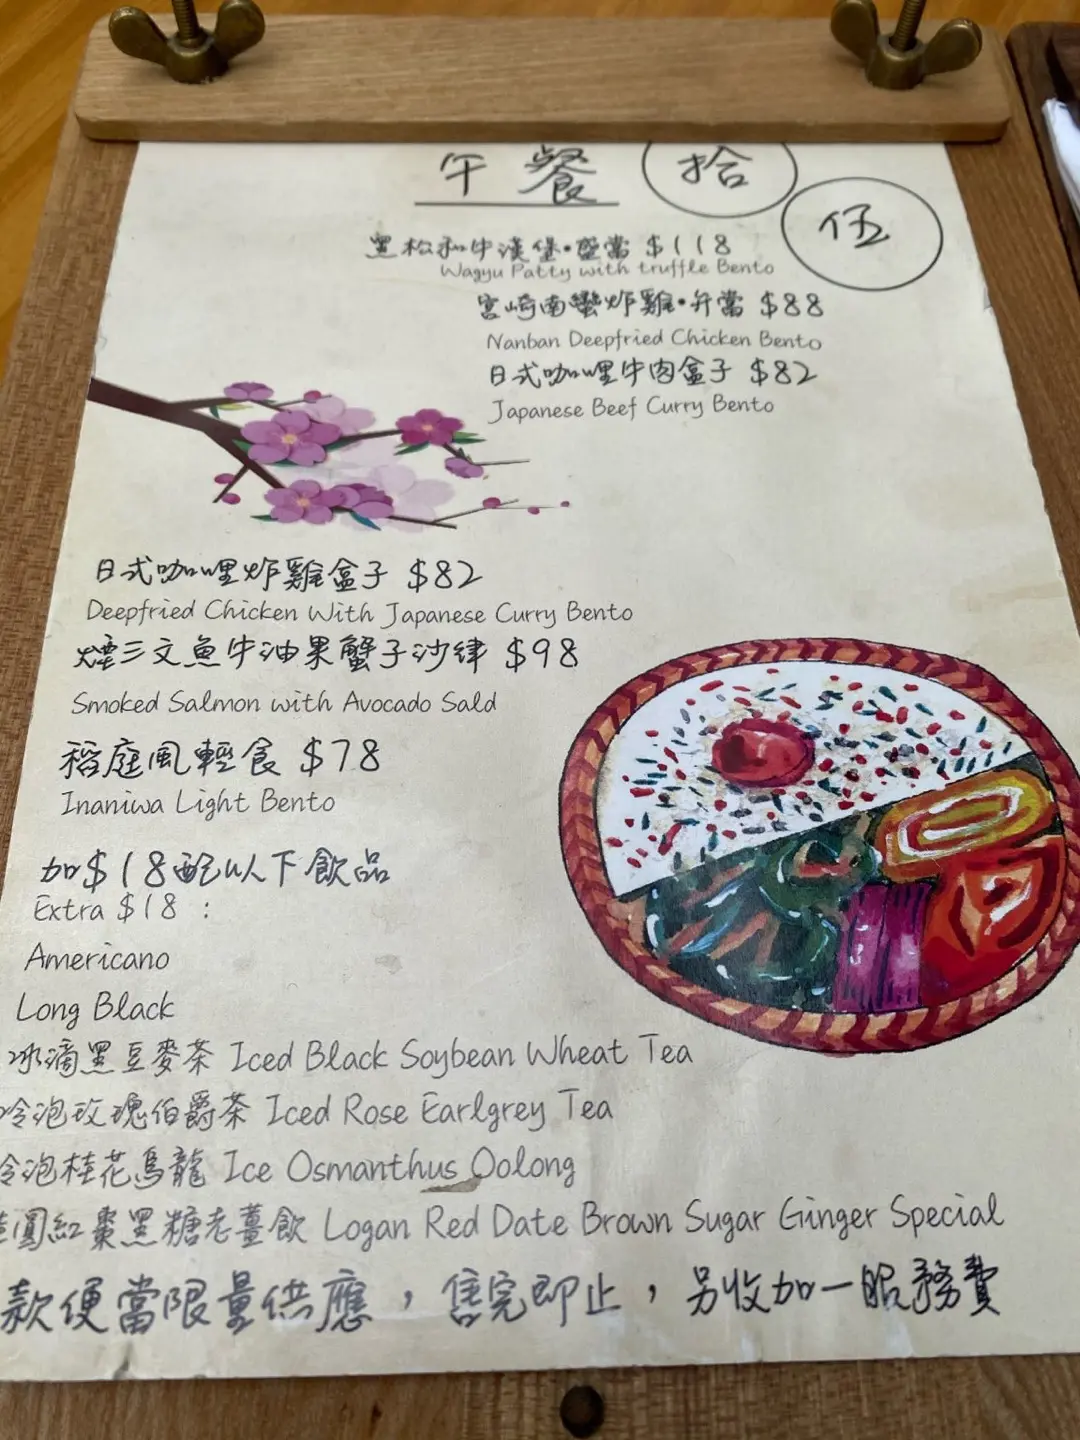 午餐
拾
伍
黑松和牛漢堡•盛當 $118
Wagyu Patty with truffle Bento
宮崎南蠻炸雞•弁當 $88
Nanban Deepfried Chicken Bento
日式咖喱牛肉盒子 $82
Japanese Beef Curry Bento
日式咖喱炸雞盒子 $82
Deepfried Chicken With Japanese Curry Bento
煙三文魚牛油果蟹子沙律 $98
Smoked Salmon with Avocado Sald
稻庭風輕食 $78
Inaniwa Light Bento
加$18配以下飲品
Extra $18 :
Americano
Long Black
冰滴黑豆麥茶 Iced Black Soybean Wheat Tea
冷泡玫瑰伯爵茶 Iced Rose Earlgrey Tea
冷泡桂花烏龍 Ice Osmanthus Oolong
圓紅棗黑糖老薑飲 Logan Red Date Brown Sugar Ginger Special
款便當限量供應，售完即止，另收加一服務費